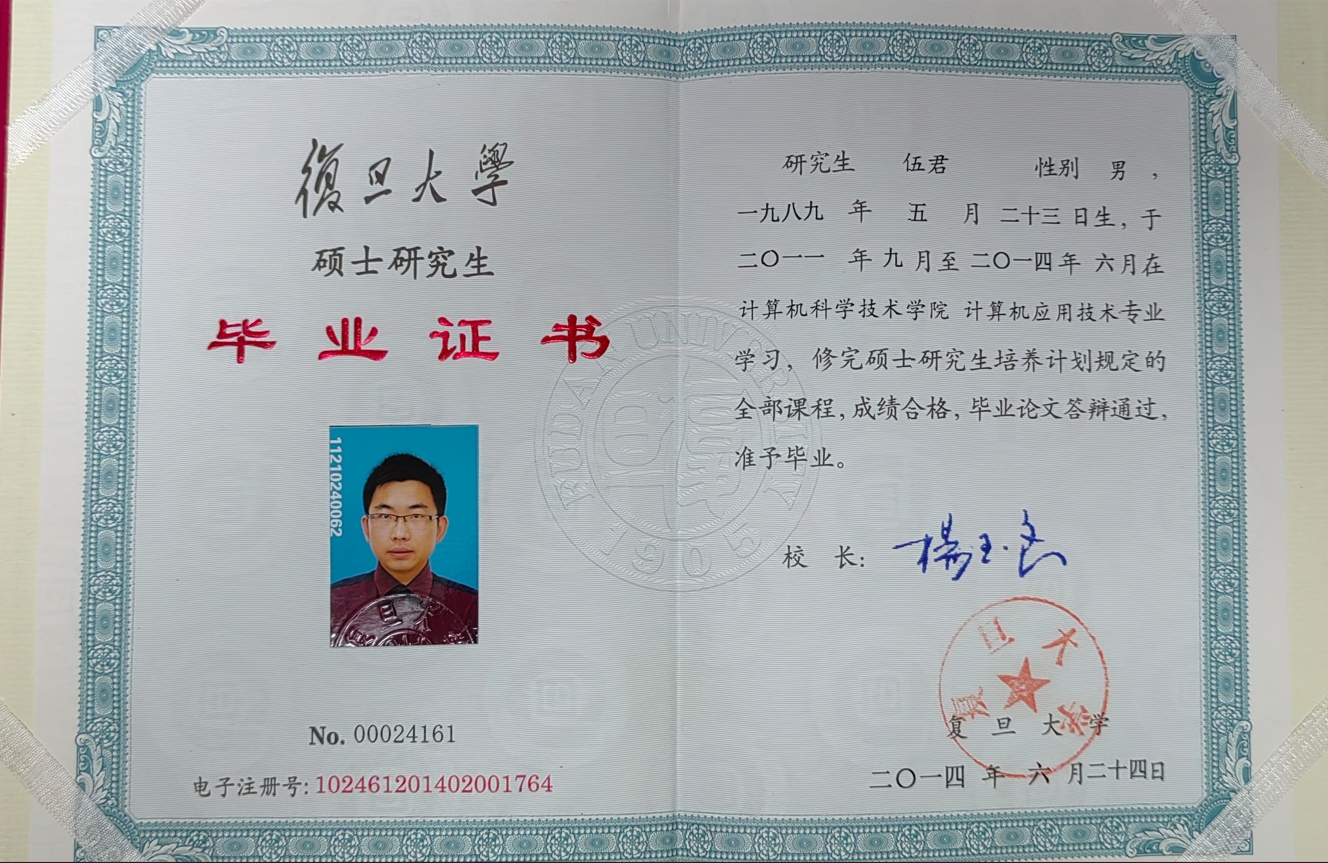 復旦大學
硕士研究生
毕业证书
11210240062
No. 00024161
电子注册号: 102461201402001764
研究生 伍君 性别 男，
一九八九 年 五 月 二十三 日生，于
二〇一一 年 九 月至 二〇一四 年 六 月在
计算机科学技术学院 计算机应用技术专业
学习，修完硕士研究生培养计划规定的
全部课程，成绩合格，毕业论文答辩通过，
准予毕业。
校 长： 楊玉良
复旦大学
复 旦 大 学
二〇一四 年 六 月二十四日
FUDAN UNIVERSITY
1905